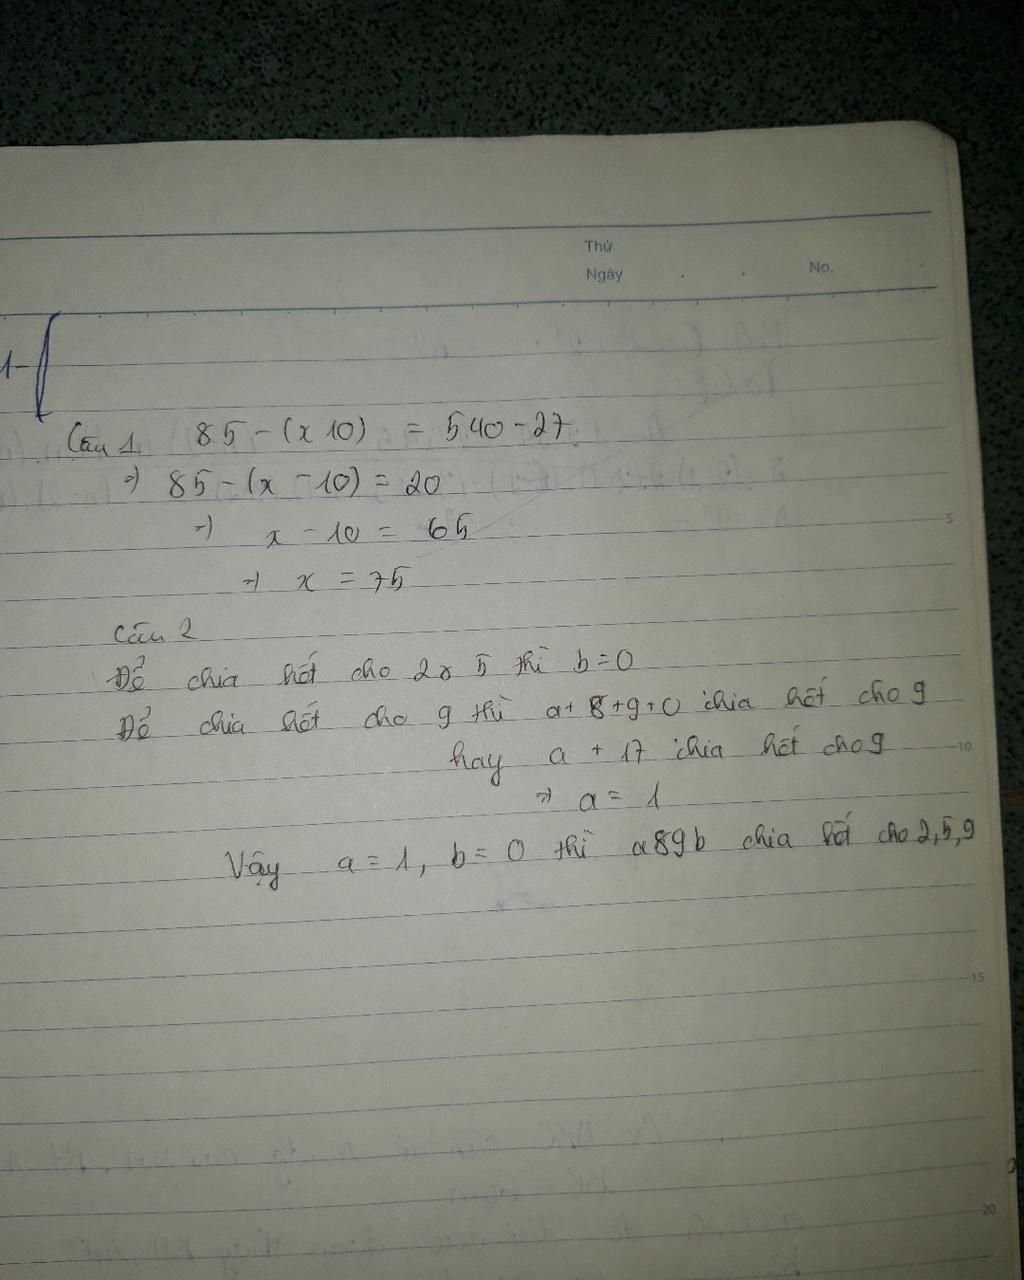 Thứ
Ngày . . No.
1-
Câu 1 85-(x 10) = 540-27
=) 85-(x -10) = 20
=) x - 10 = 65
=) x = 75
Câu 2
Để chia hết cho 2 và 5 thì b=0
Để chia hết cho 9 thì a+8+9+0 chia hết cho 9
hay a + 17 chia hết cho 9
=) a = 1
Vậy a = 1, b = 0 thì a89b chia hết cho 2,5,9
5
10
15
20